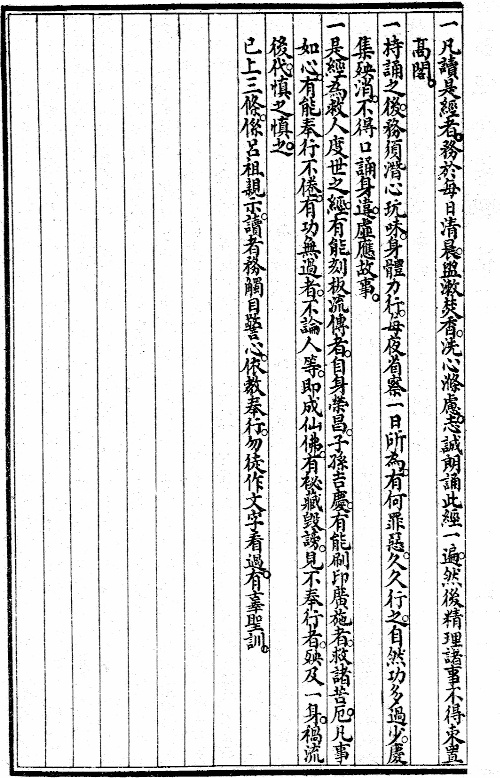 一凡讀是經者。務於每日清晨。盥漱焚香。洗心滌慮。志誠朗誦此經一遍。然後精理諸事。不得束置
高閣。
一持誦之後。務須潛心玩味。身體力行。每夜省察一日所為。有何罪惡。久久行之。自然功多過少。慶
集殃消。不得口誦身違。虛應故事。
一是經為救人度世之經。有能刻板流傳者。自身榮昌。子孫吉慶。有能刷印廣施者。救諸苦厄。凡事
如心。有能奉行不倦。有功無過者。不論人等。即成仙佛。有秘藏毀謗。見不奉行者。殃及一身。禍流
後代。慎之慎之。
已上三條。係呂祖親示。讀者務觸目警心。依教奉行。勿徒作文字看過。有辜聖訓。